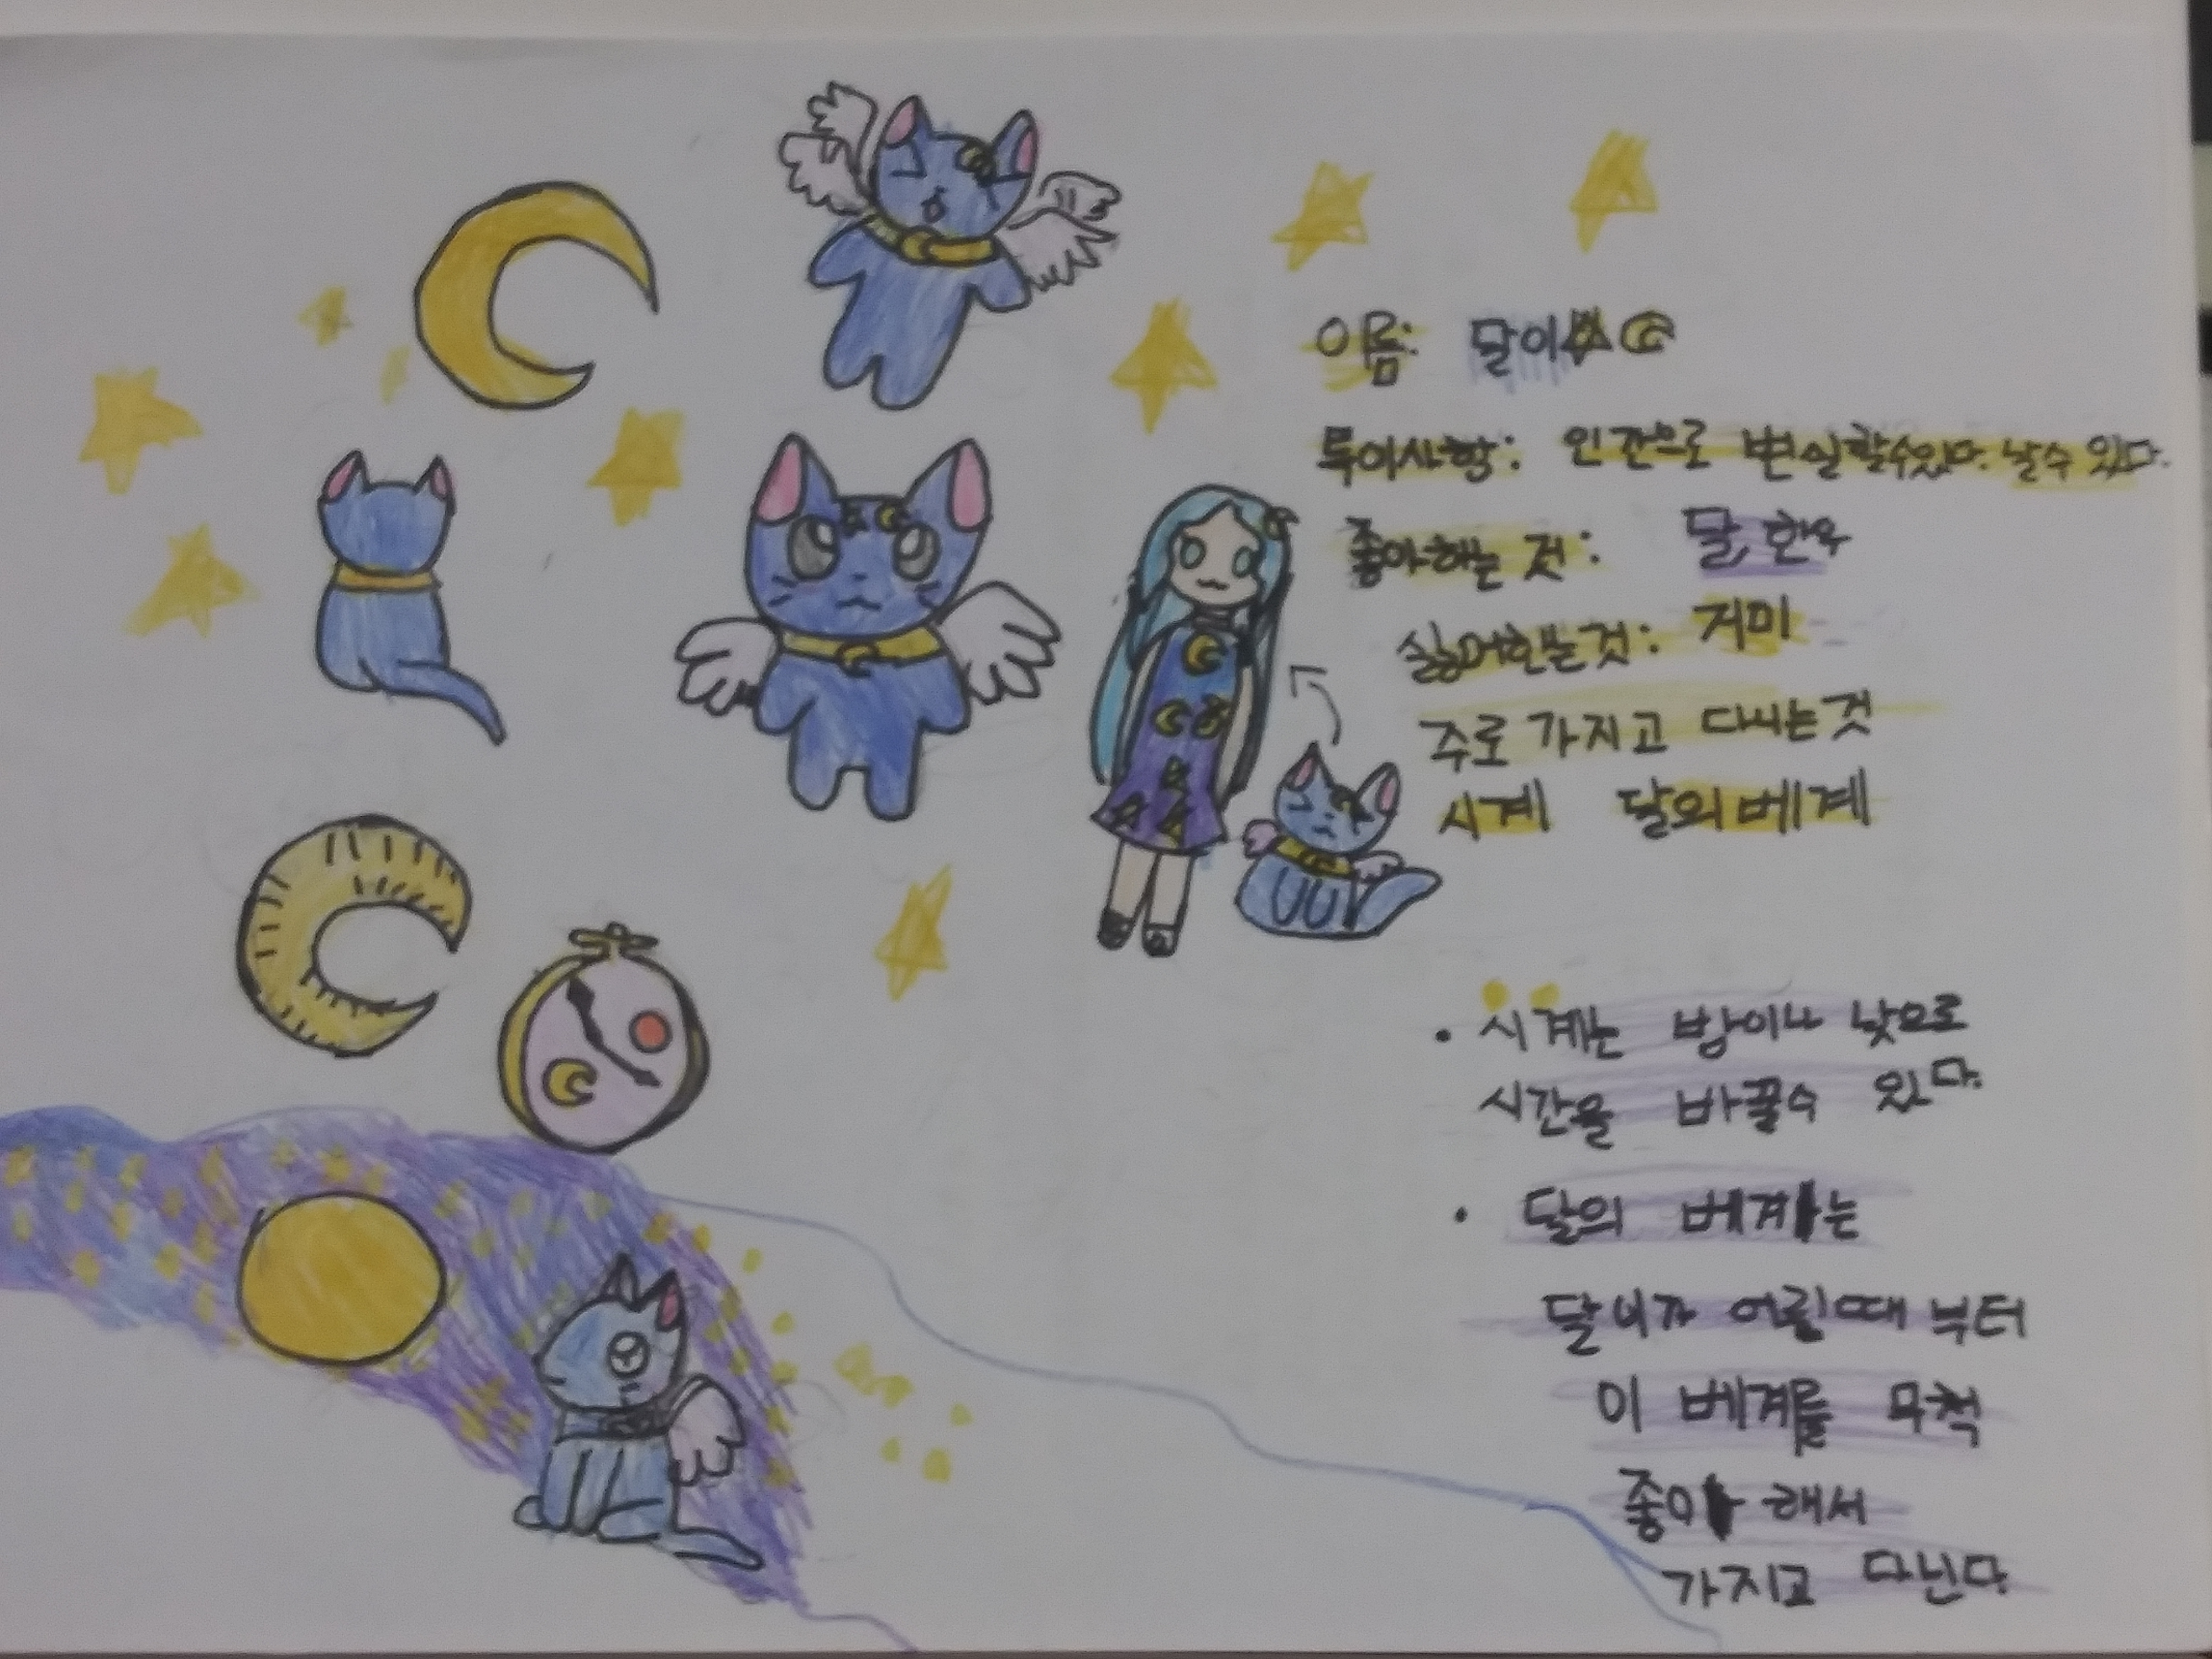 이름: 달이
특이사항: 인간으로 변신할수있다. 날수 있다.
좋아하는 것: 달,
싫어하는것: 거미
주로 가지고 다니는것
시계 달의베게
• 시계는 밤이나 낮으로
시간을 바꿀수 있다.
• 달의 베게는
달이가 어린때 부터
이 베게를 무척
좋아 해서
가지고 다닌다